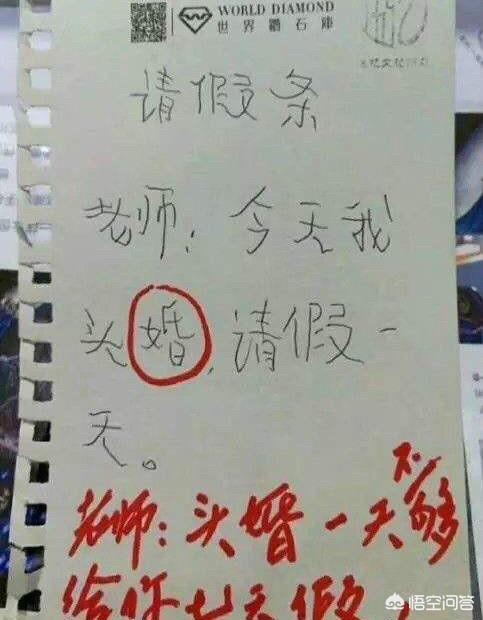 WORLD DIAMOND
世界鑽石庫
请假条
老师：今天我
头婚，请假一
天。
老师：头婚一天不够
给你七天假，
悟空问答